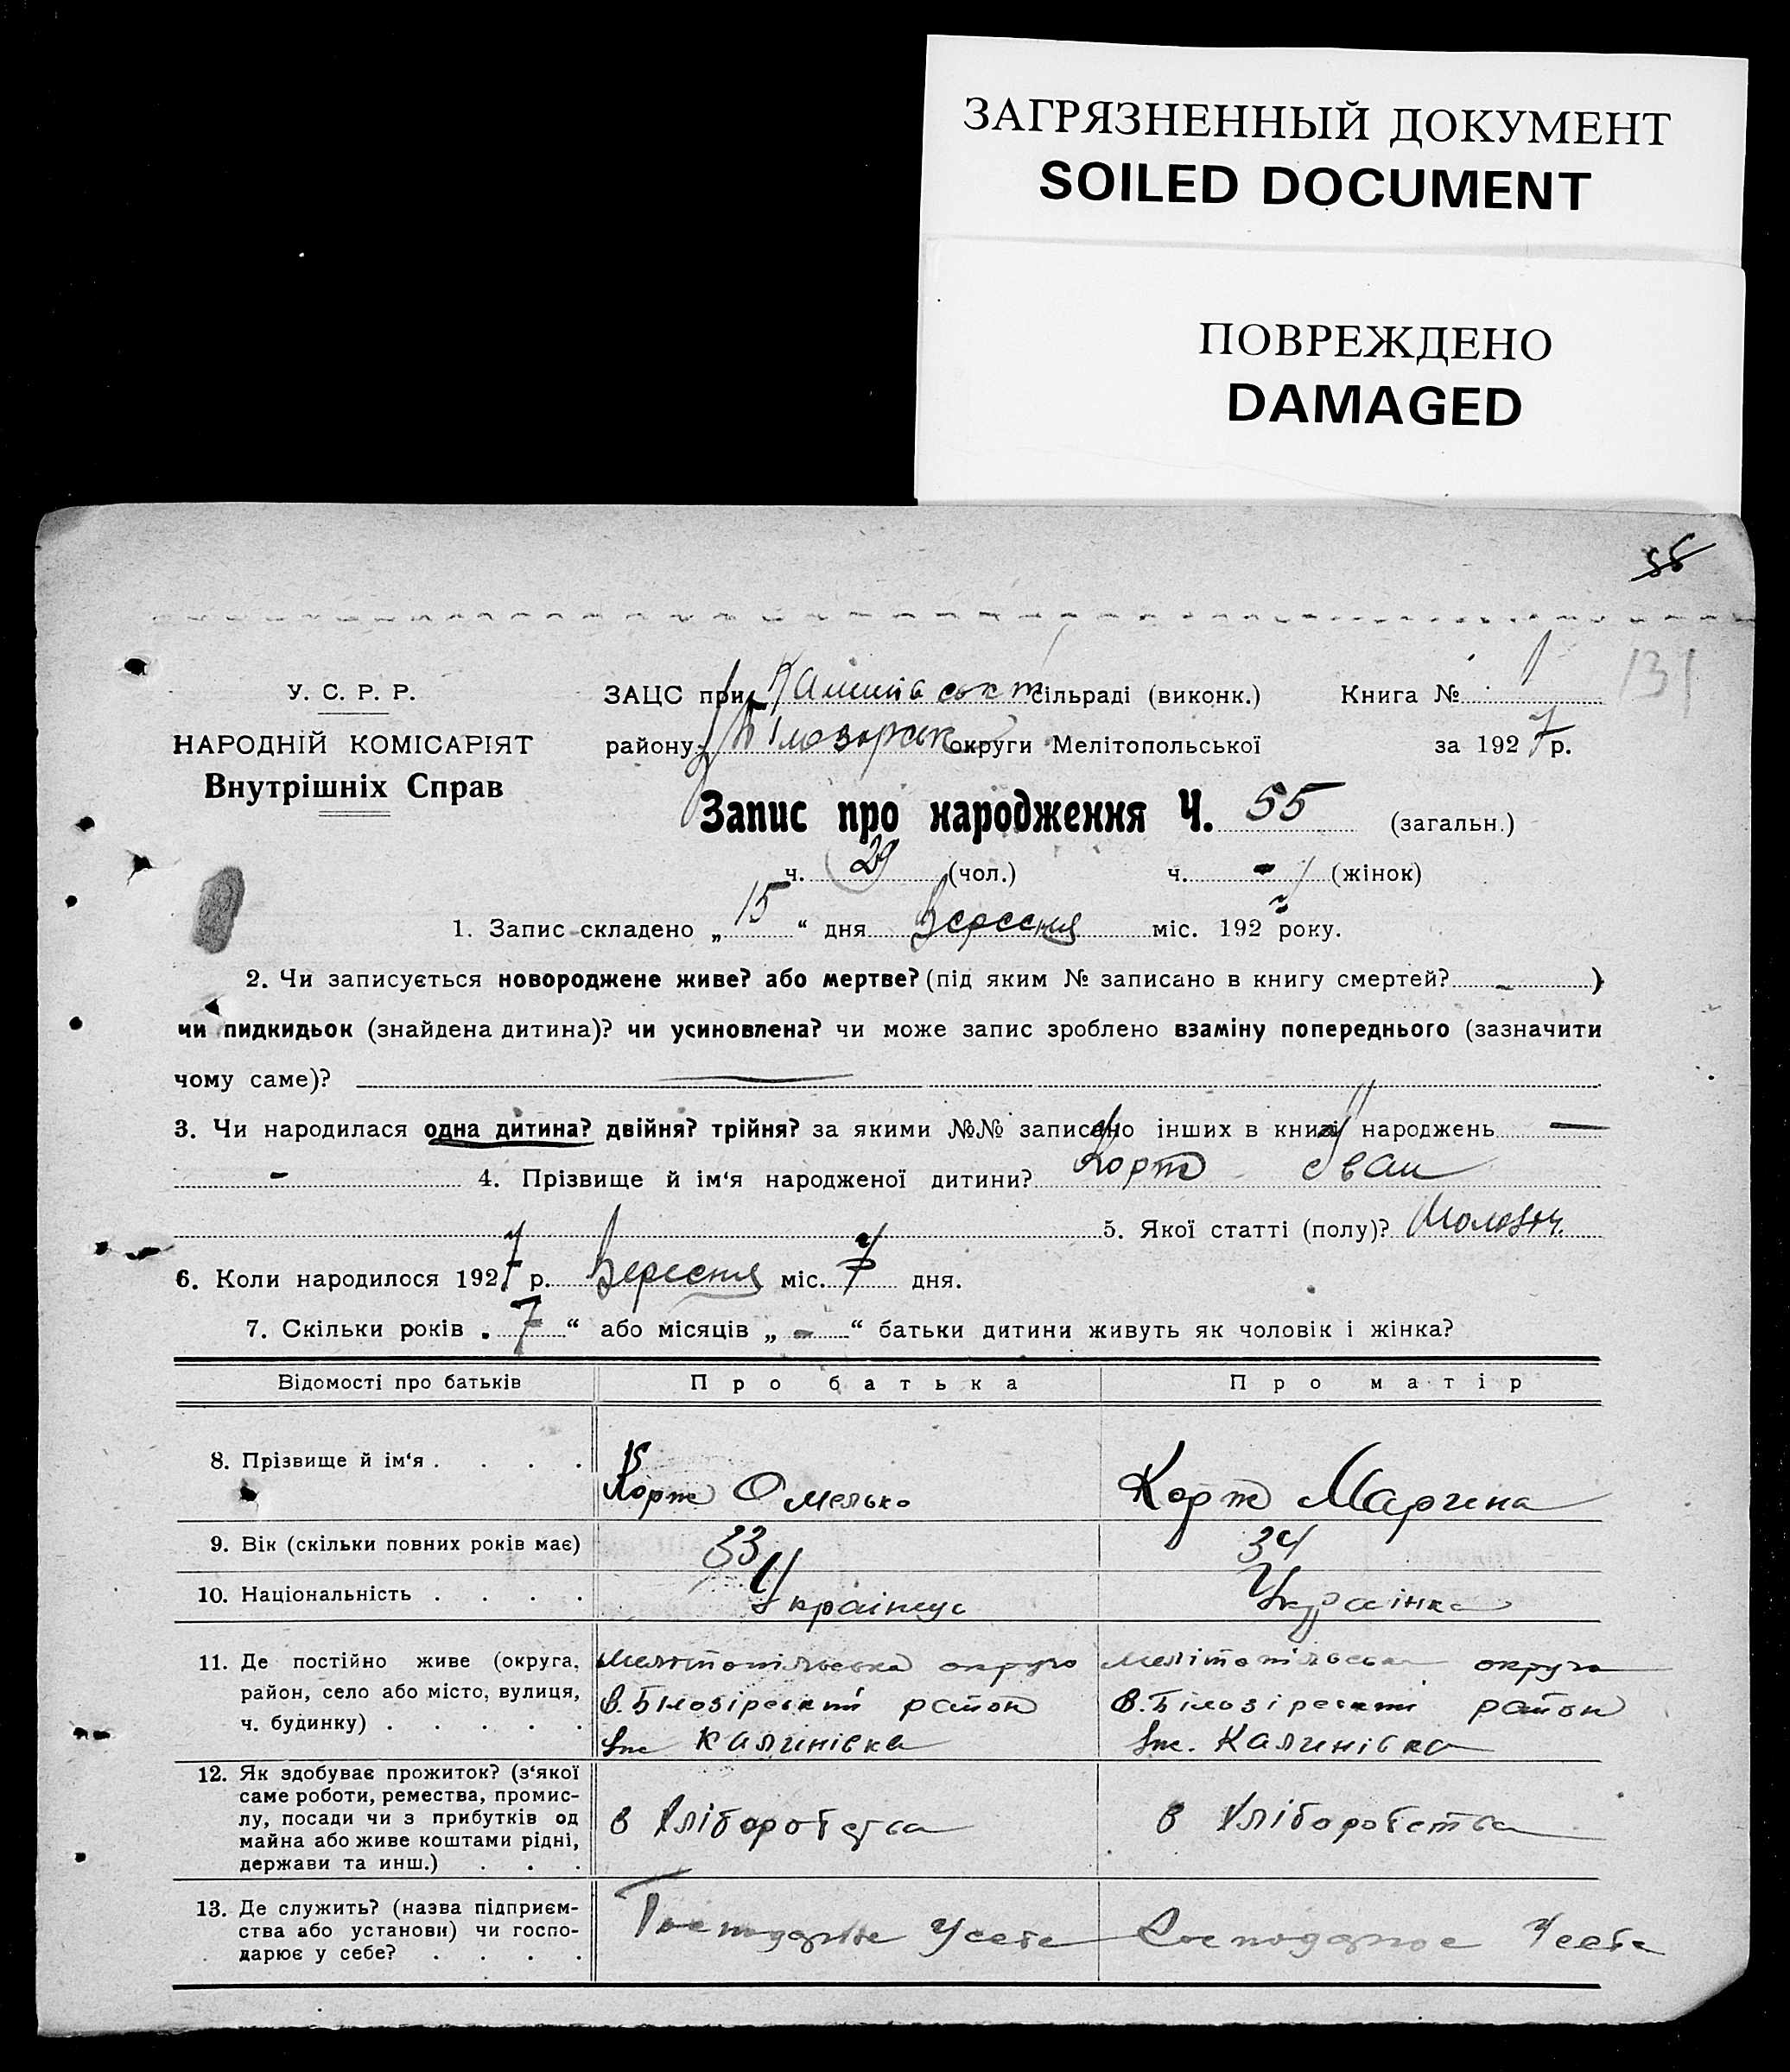 ЗАГРЯЗНЕННЫЙ ДОКУМЕНТ
SOILED DOCUMENT
ПОВРЕЖДЕНО
DAMAGED
55
131
У. С. Р. Р.
НАРОДНІЙ КОМІСАРІЯТ
Внутрішніх Справ
ЗАЦС при сільраді (виконк.) Книга № 1
району округи Мелітопольської за 1927 р.
Запис про народження Ч. 55 (загальн.)
ч. 29 (чол.) ч. - (жінок)
1. Запис складено „15“ дня Вересня міс. 1927 року.
2. Чи записується новороджене живе? або мертве? (під яким № записано в книгу смертей? - )
чи пидкидьок (знайдена дитина)? чи усиновлена? чи може запис зроблено взаміну попереднього (зазначити
чому саме)? —
3. Чи народилася одна дитина? двійня? трійня? за якими №№ записано інших в книзі народжень —
- 4. Прізвище й ім‘я народженої дитини? Корт Іван
5. Якої статті (полу)?
6. Коли народилося 1927 р. Вересня міс. 7 дня.
7. Скільки років „7“ або місяців „-“ батьки дитини живуть як чоловік і жінка?
Відомості про батьків Про батька Про матір
8. Прізвище й ім‘я . . . . Корт Омелько Корт Марина
9. Вік (скільки повних років має) 33 34
10. Національність . . . . Українець Українка
11. Де постійно живе (округа, район, село або місто, вулиця, ч. будинку) . . . . .
Мелітопільська округа
В. Білозірський район
Калинівка
Мелітопільська округа
В. Білозірський район
Калинівка
12. Як здобуває прожиток? (з‘якої саме роботи, ремества, промис-
лу, посади чи з прибутків од
майна або живе коштами рідні,
держави та инш.) . . .
з хліборобства з хліборобства
13. Де служить? (назва підприєм-
ства або установи) чи госпо-
дарює у себе? . . . .
Господарює у себе Господарює у себе